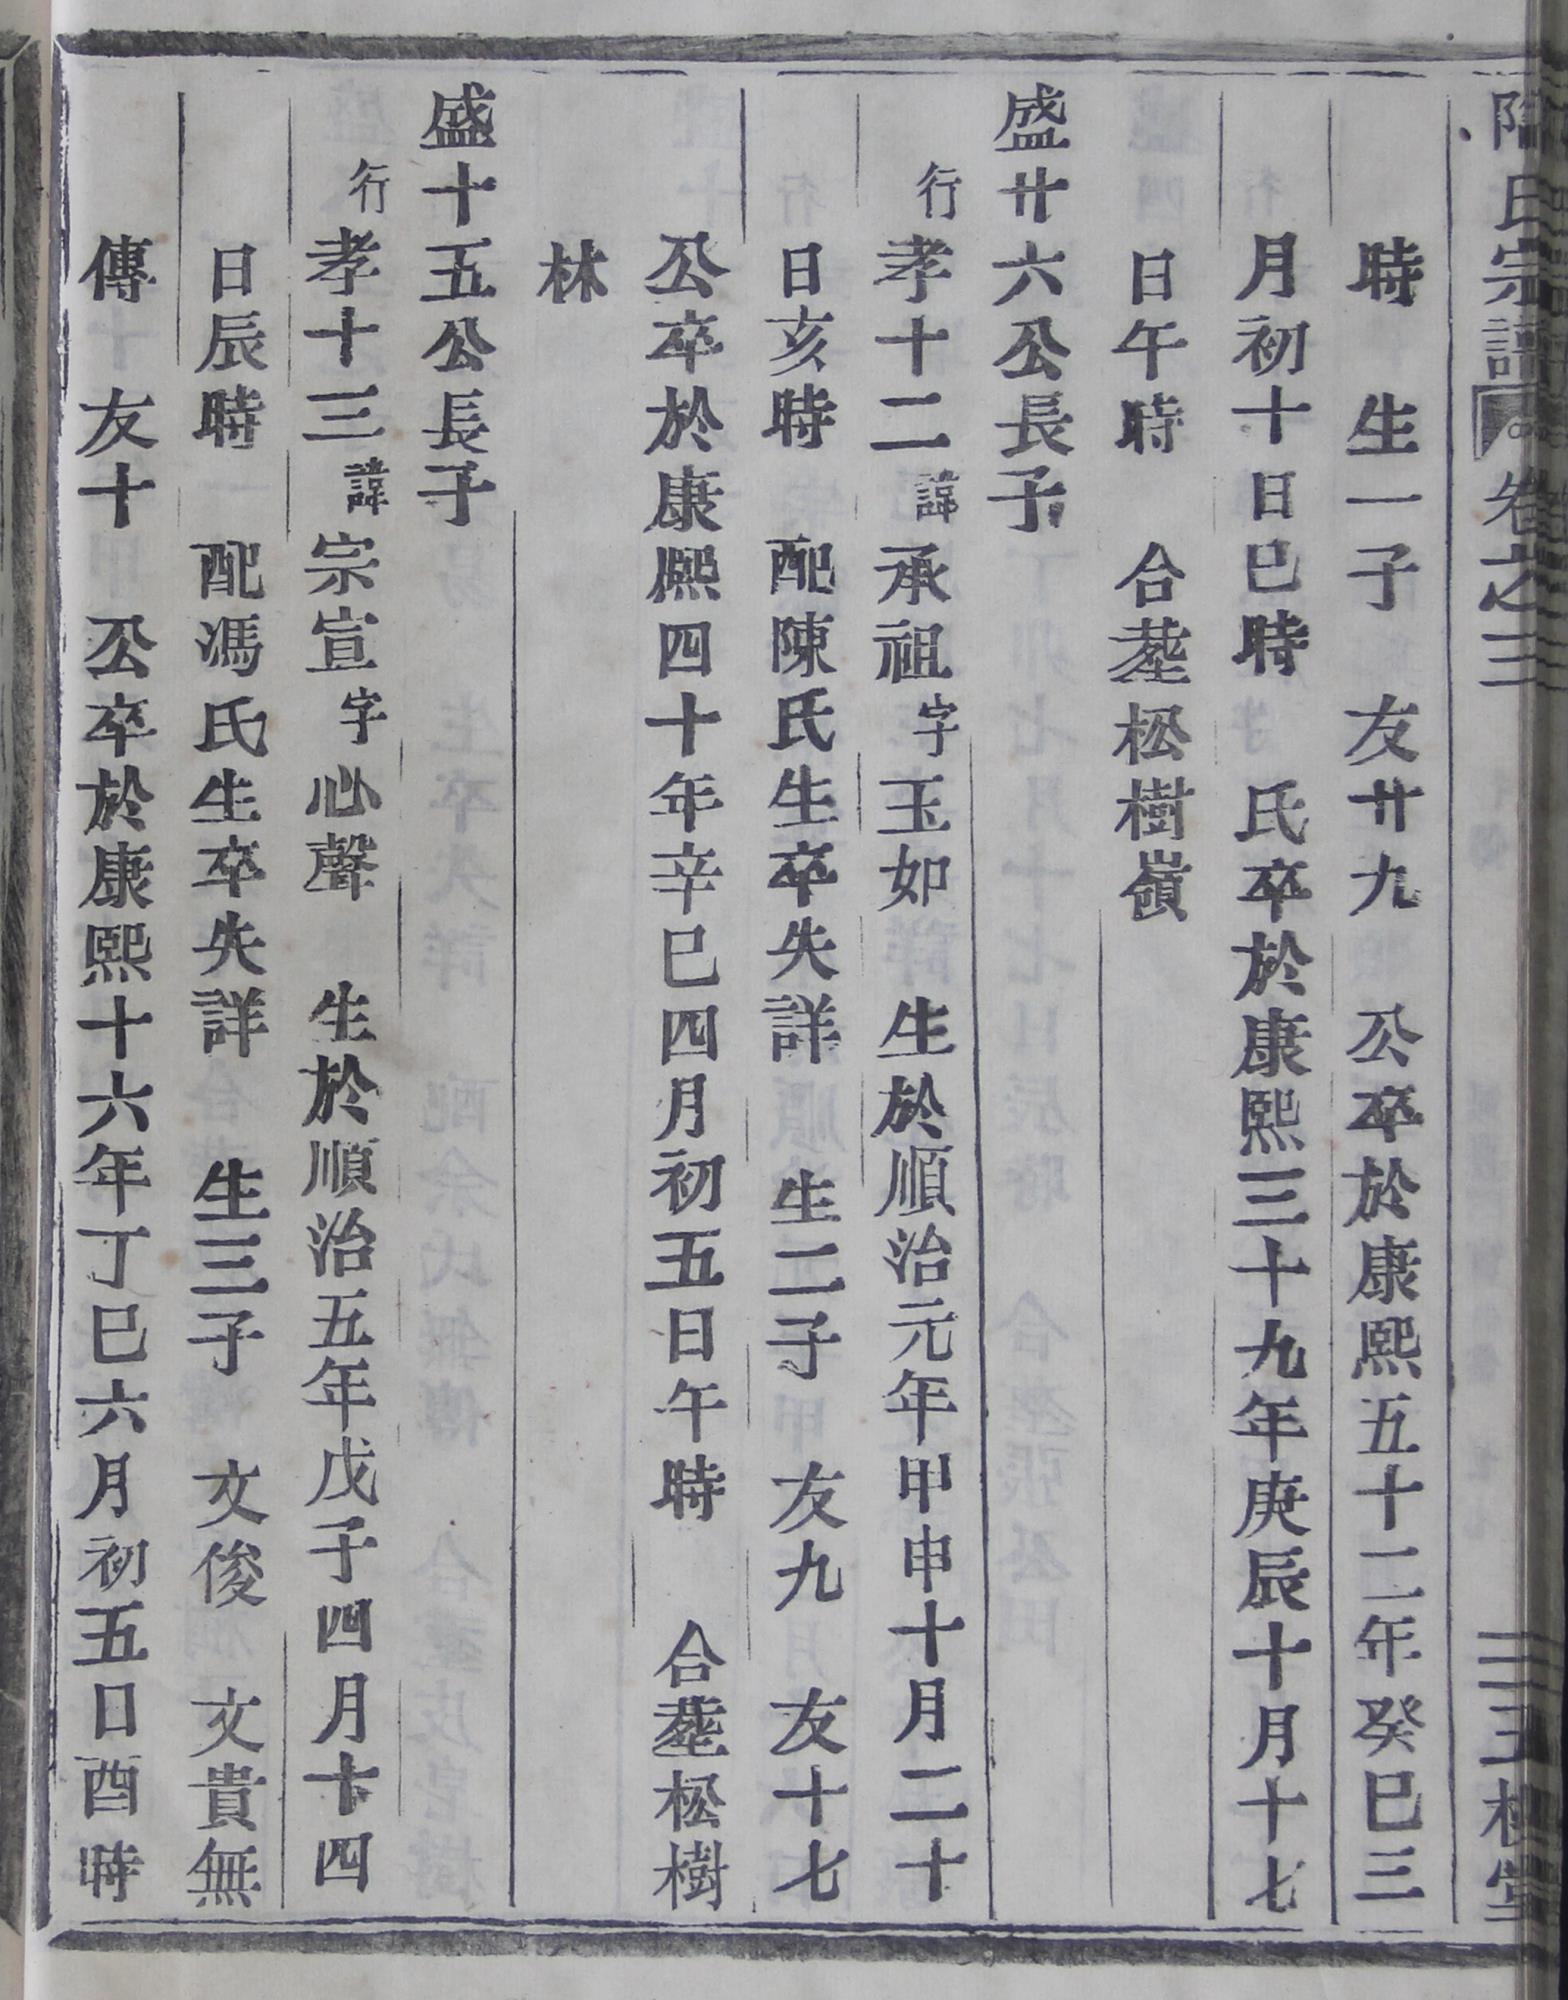 氏宗譜 卷之三 三槐堂
時 生一子 友廿九 公卒於康熙五十二年癸巳三
月初十日巳時 氏卒於康熙三十九年庚辰十月十七
日午時 合塟松樹嶺
盛廿六公長子
行孝十二諱承祖字玉如 生於順治元年甲申十月二十
日亥時 配陳氏生卒失詳 生二子 友九 友十七
公卒於康熙四十年辛巳四月初五日午時 合塟松樹
林
盛十五公長子
行孝十三諱宗宣字心聲 生於順治五年戊子四月十四
日辰時 配馮氏生卒失詳 生三子 文俊 文貴無
傳 友十 公卒於康熙十六年丁巳六月初五日酉時